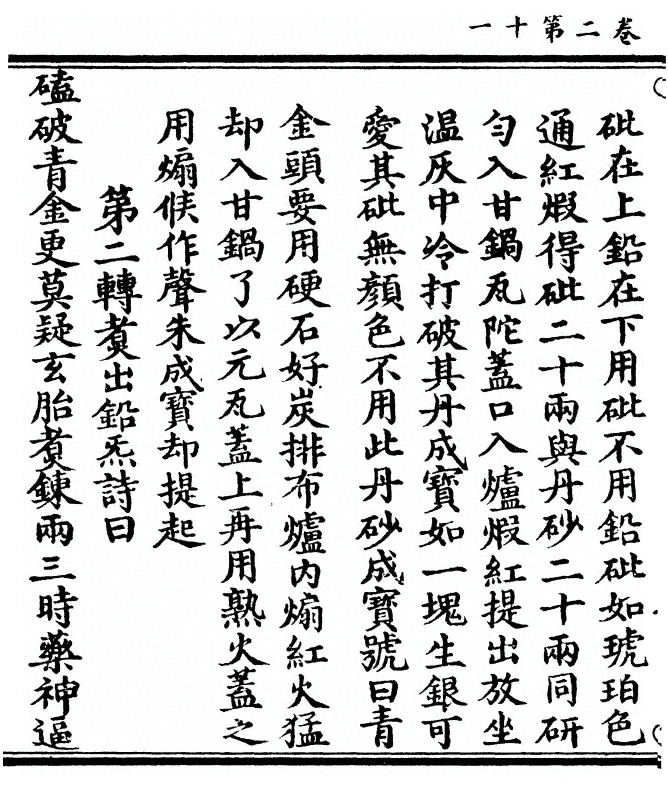 卷二第十一
砒在上鉛在下用砒不用鉛砒如琥珀色
通紅煆得砒二十兩與丹砂二十兩同研
勻入甘鍋瓦陀蓋口入爐煆紅提出放坐
温灰中冷打破其丹成寳如一塊生銀可
愛其砒無顏色不用此丹砂成寳號曰青
金頭要用硬石好炭排布爐内煽紅火猛
却入甘鍋了以元瓦蓋上再用熟火蓋之
用煽候作聲朱成寳却提起
第二轉煑出鉛炁詩曰
磕破青金更莫疑玄胎煑鍊兩三時藥神逼